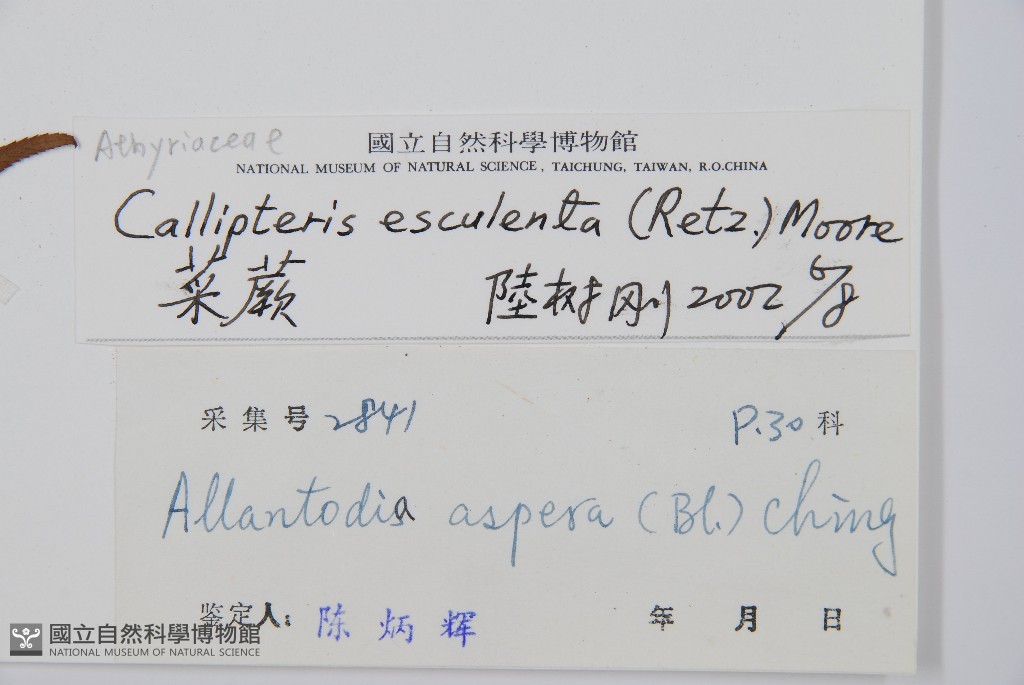 Athyriaceae
國立自然科學博物館
NATIONAL MUSEUM OF NATURAL SCIENCE, TAICHUNG, TAIWAN, R.O.CHINA
Callipteris esculenta (Retz.) Moore
菜蕨 陸树刚 2002 6/8
采集号 2841 P.30 科
Allantodia aspera (Bl.) Ching
鉴定人: 陈炳辉 年 月 日
國立自然科學博物館
NATIONAL MUSEUM OF NATURAL SCIENCE